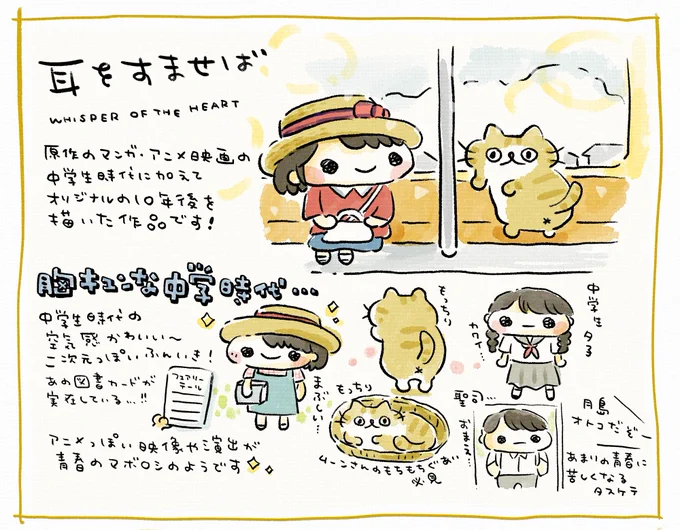 耳をすませば
WHISPER OF THE HEART
原作のマンガ・アニメ映画の
中学生時代に加えて
オリジナルの10年後を
描いた作品です!
胸キュンな中学時代...
中学生時代の
空気感かわいい〜
二次元っぽいふんいき!
あの図書カードが
実在している...!!
フェアリー
テール
アニメっぽい映像や演出が
青春のマボロシのようです
まぶしい...
もっちり
もっちり
ムーンさんのもちもちぐあい
必見
カワイ...
中学生
夕子
聖司...
おまえ...
月島
オトコだぞー
あまりの青春に
苦しくなる
タスケテ